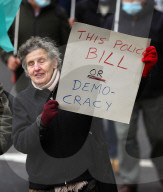 THIS POLICE
BILL
OR
DEM-
OCRACY